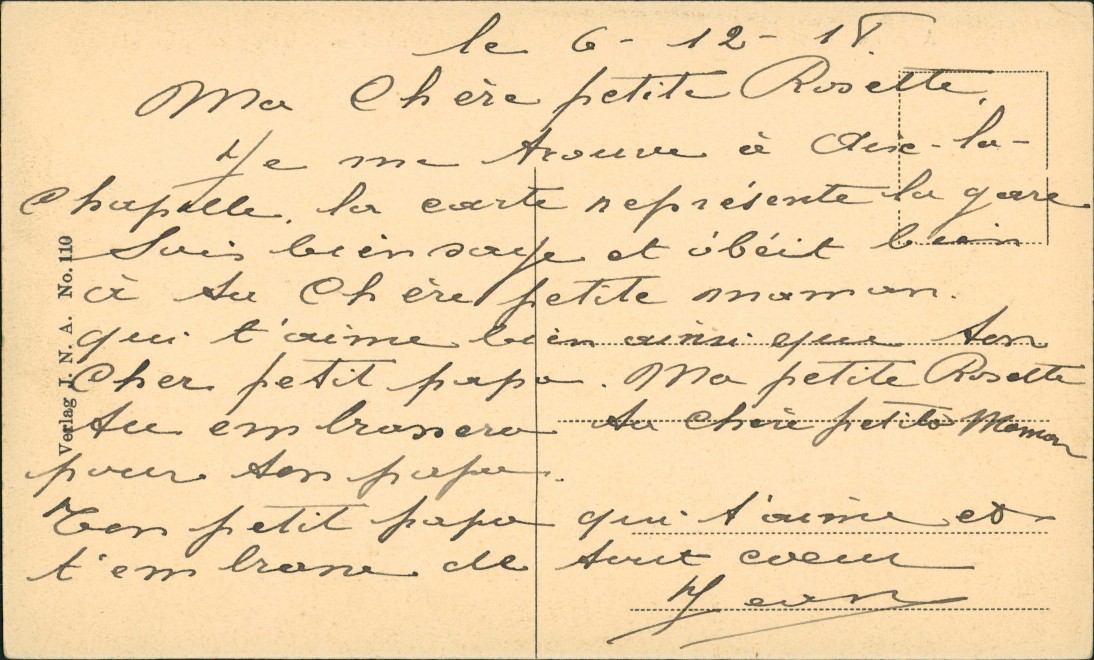 le 6-12-18.
Ma Chère petite Rosette,
Je me trouve à Aix-la-
Chapelle, la carte représente la gare
Sois bien sage et obéit bien
à ta Chère petite maman.
qui t'aime bien ainsi que ton
Cher petit papa. Ma petite Rosette
tu embrassera ta Chère petite Maman
pour ton papa.
Ton petit papa qui t'aime et
t'embrasse de tout coeur
Jean
Verlag J. N. A. No. 110